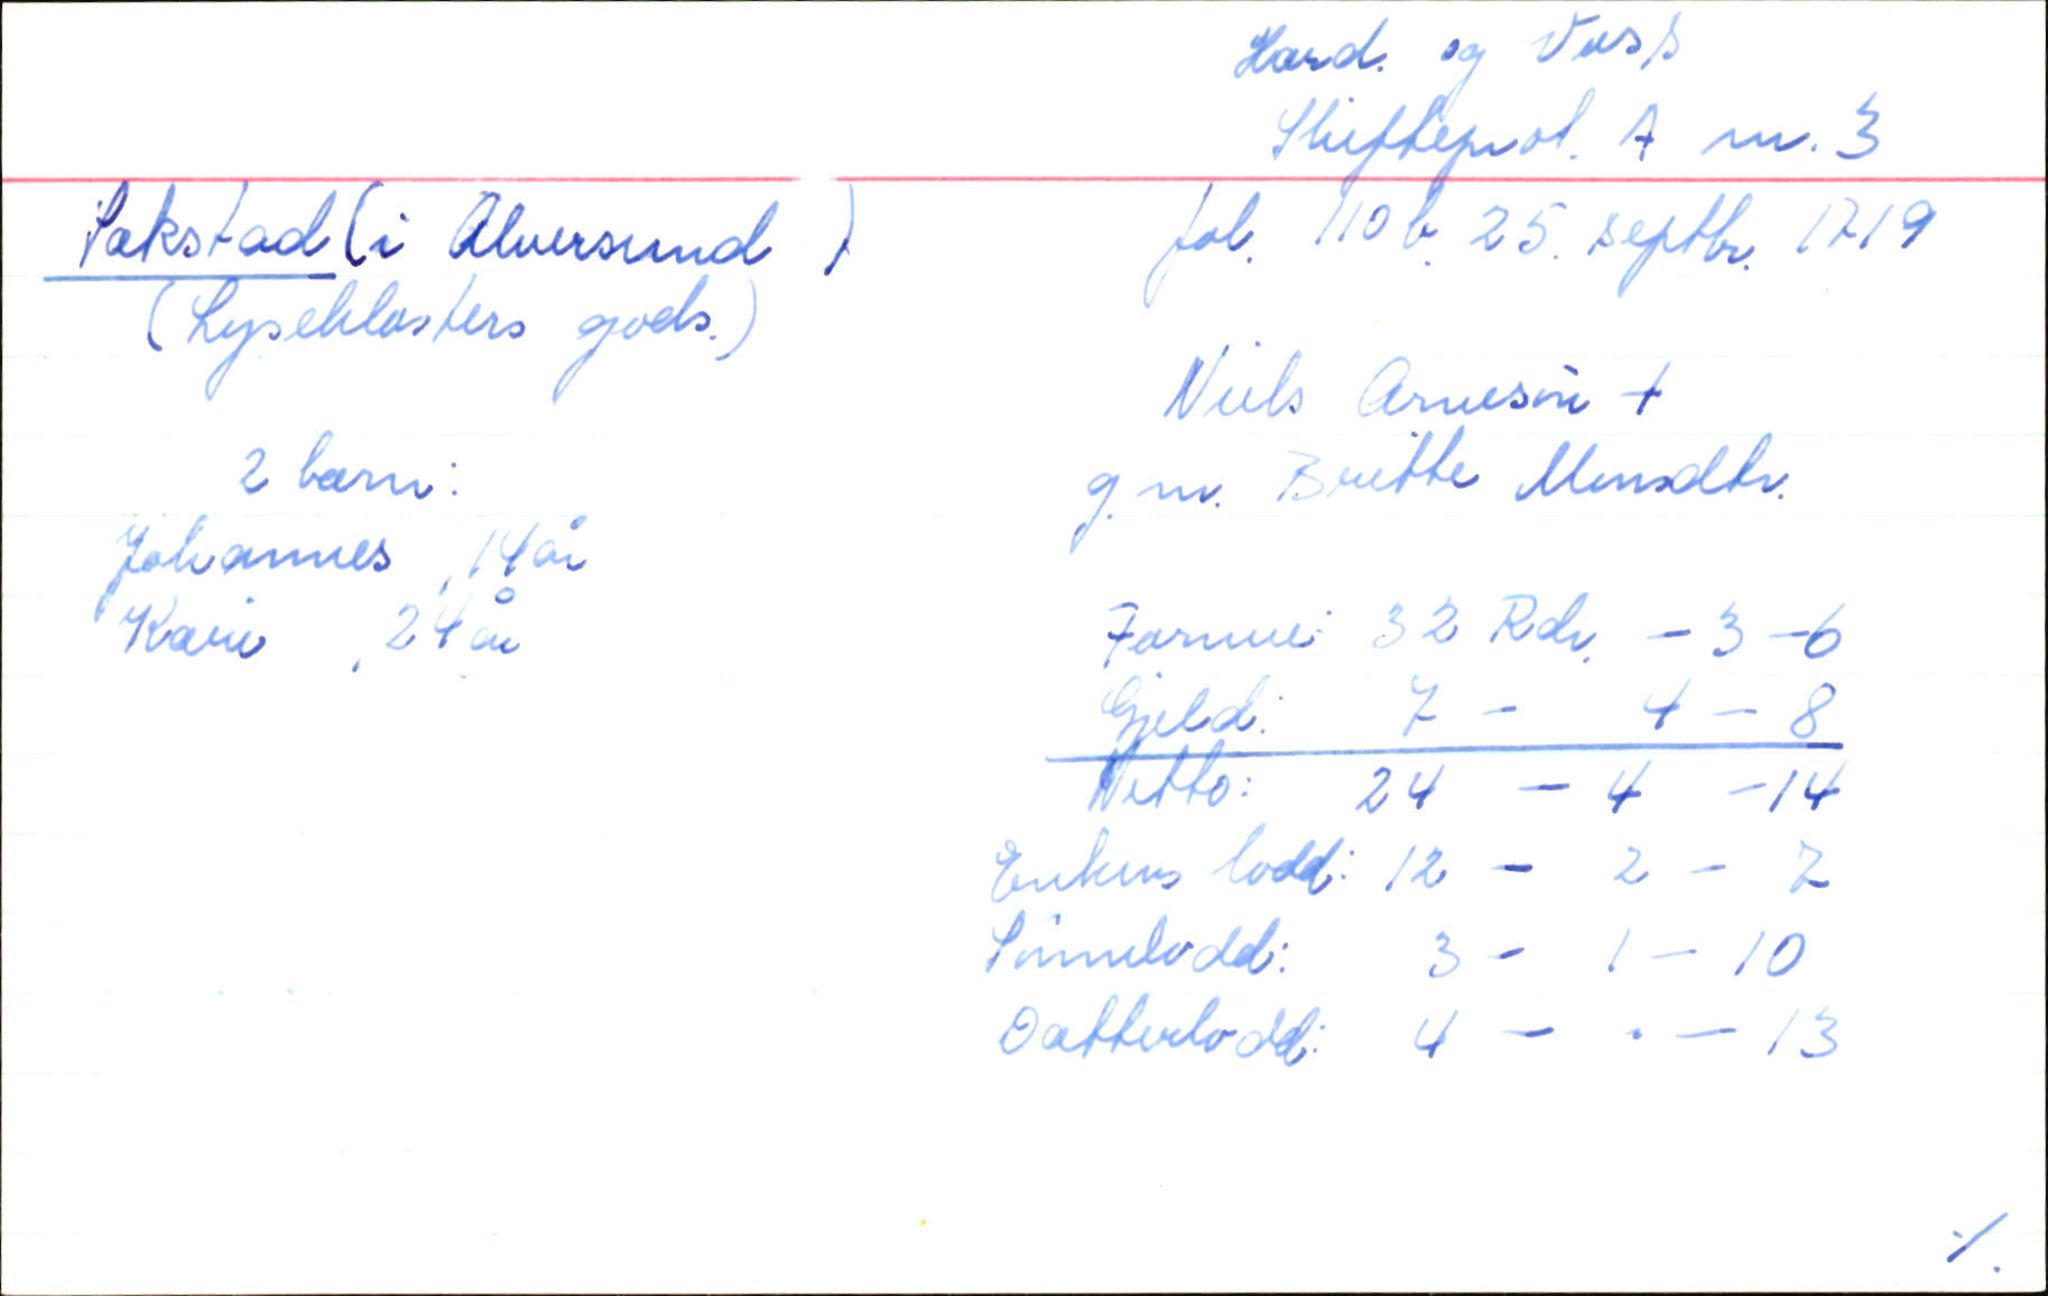 Hard. og Voss
Skifteprot. A nr. 3
Sakstad (i Alversund)
fol. 110 b. 25. septbr. 1719
(Lyseklosters gods.)
Niels Arnesøn +
g. m. Britte Monsdtr.
2 barn:
Johannes, 14 år
Kari, 24 år
Formue: 32 Rdr. - 3 - 6
Gjeld: 7 - 4 - 8
Netto: 24 - 4 - 14
Enkens lodd: 12 - 2 - 7
Sønnelodd: 3 - 1 - 10
Datterlodd: 4 - . - 13
./.